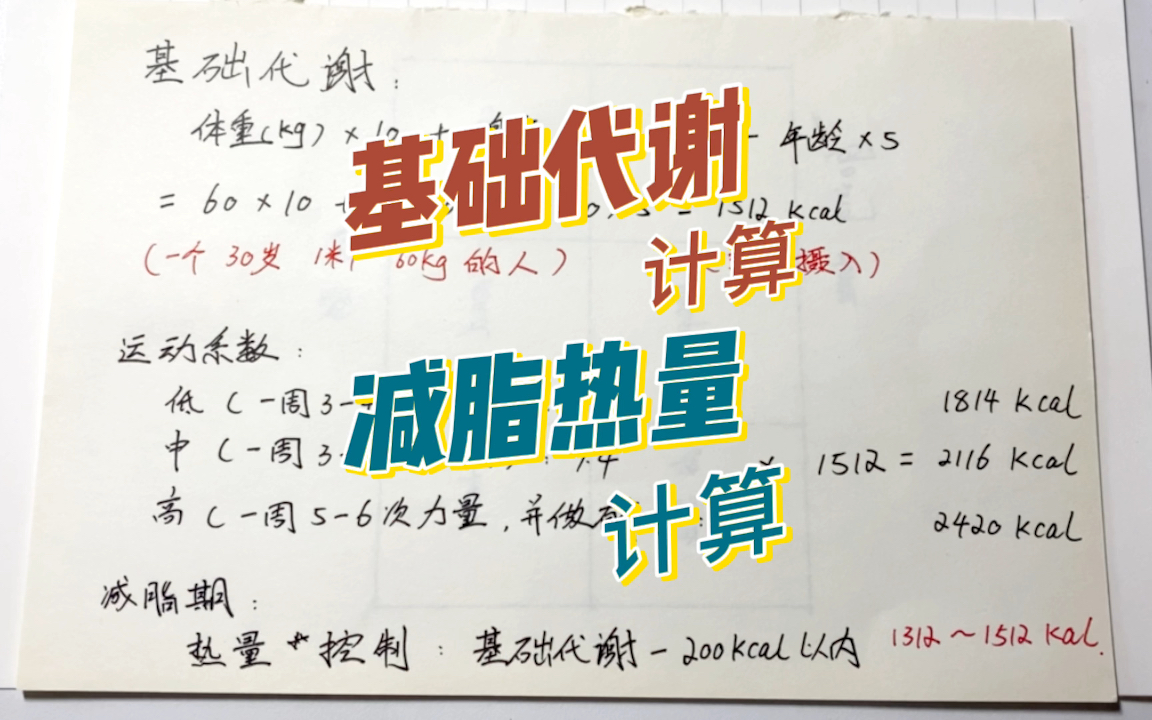 基础代谢：
体重(kg) × 10 + - 年龄 × 5
= 60 × 10 = 1512 kcal
(一个 30岁 1米 60kg 的人) 摄入)
基础代谢
计算
运动系数：
低 (一周3- 1814 kcal
中 (一周3- : 1.4 × 1512 = 2116 kcal
高 (一周5-6次力量，并做 : 2420 kcal
减脂热量
计算
减脂期：
热量 控制：基础代谢 - 200kcal 以内 1312～1512 Kal.